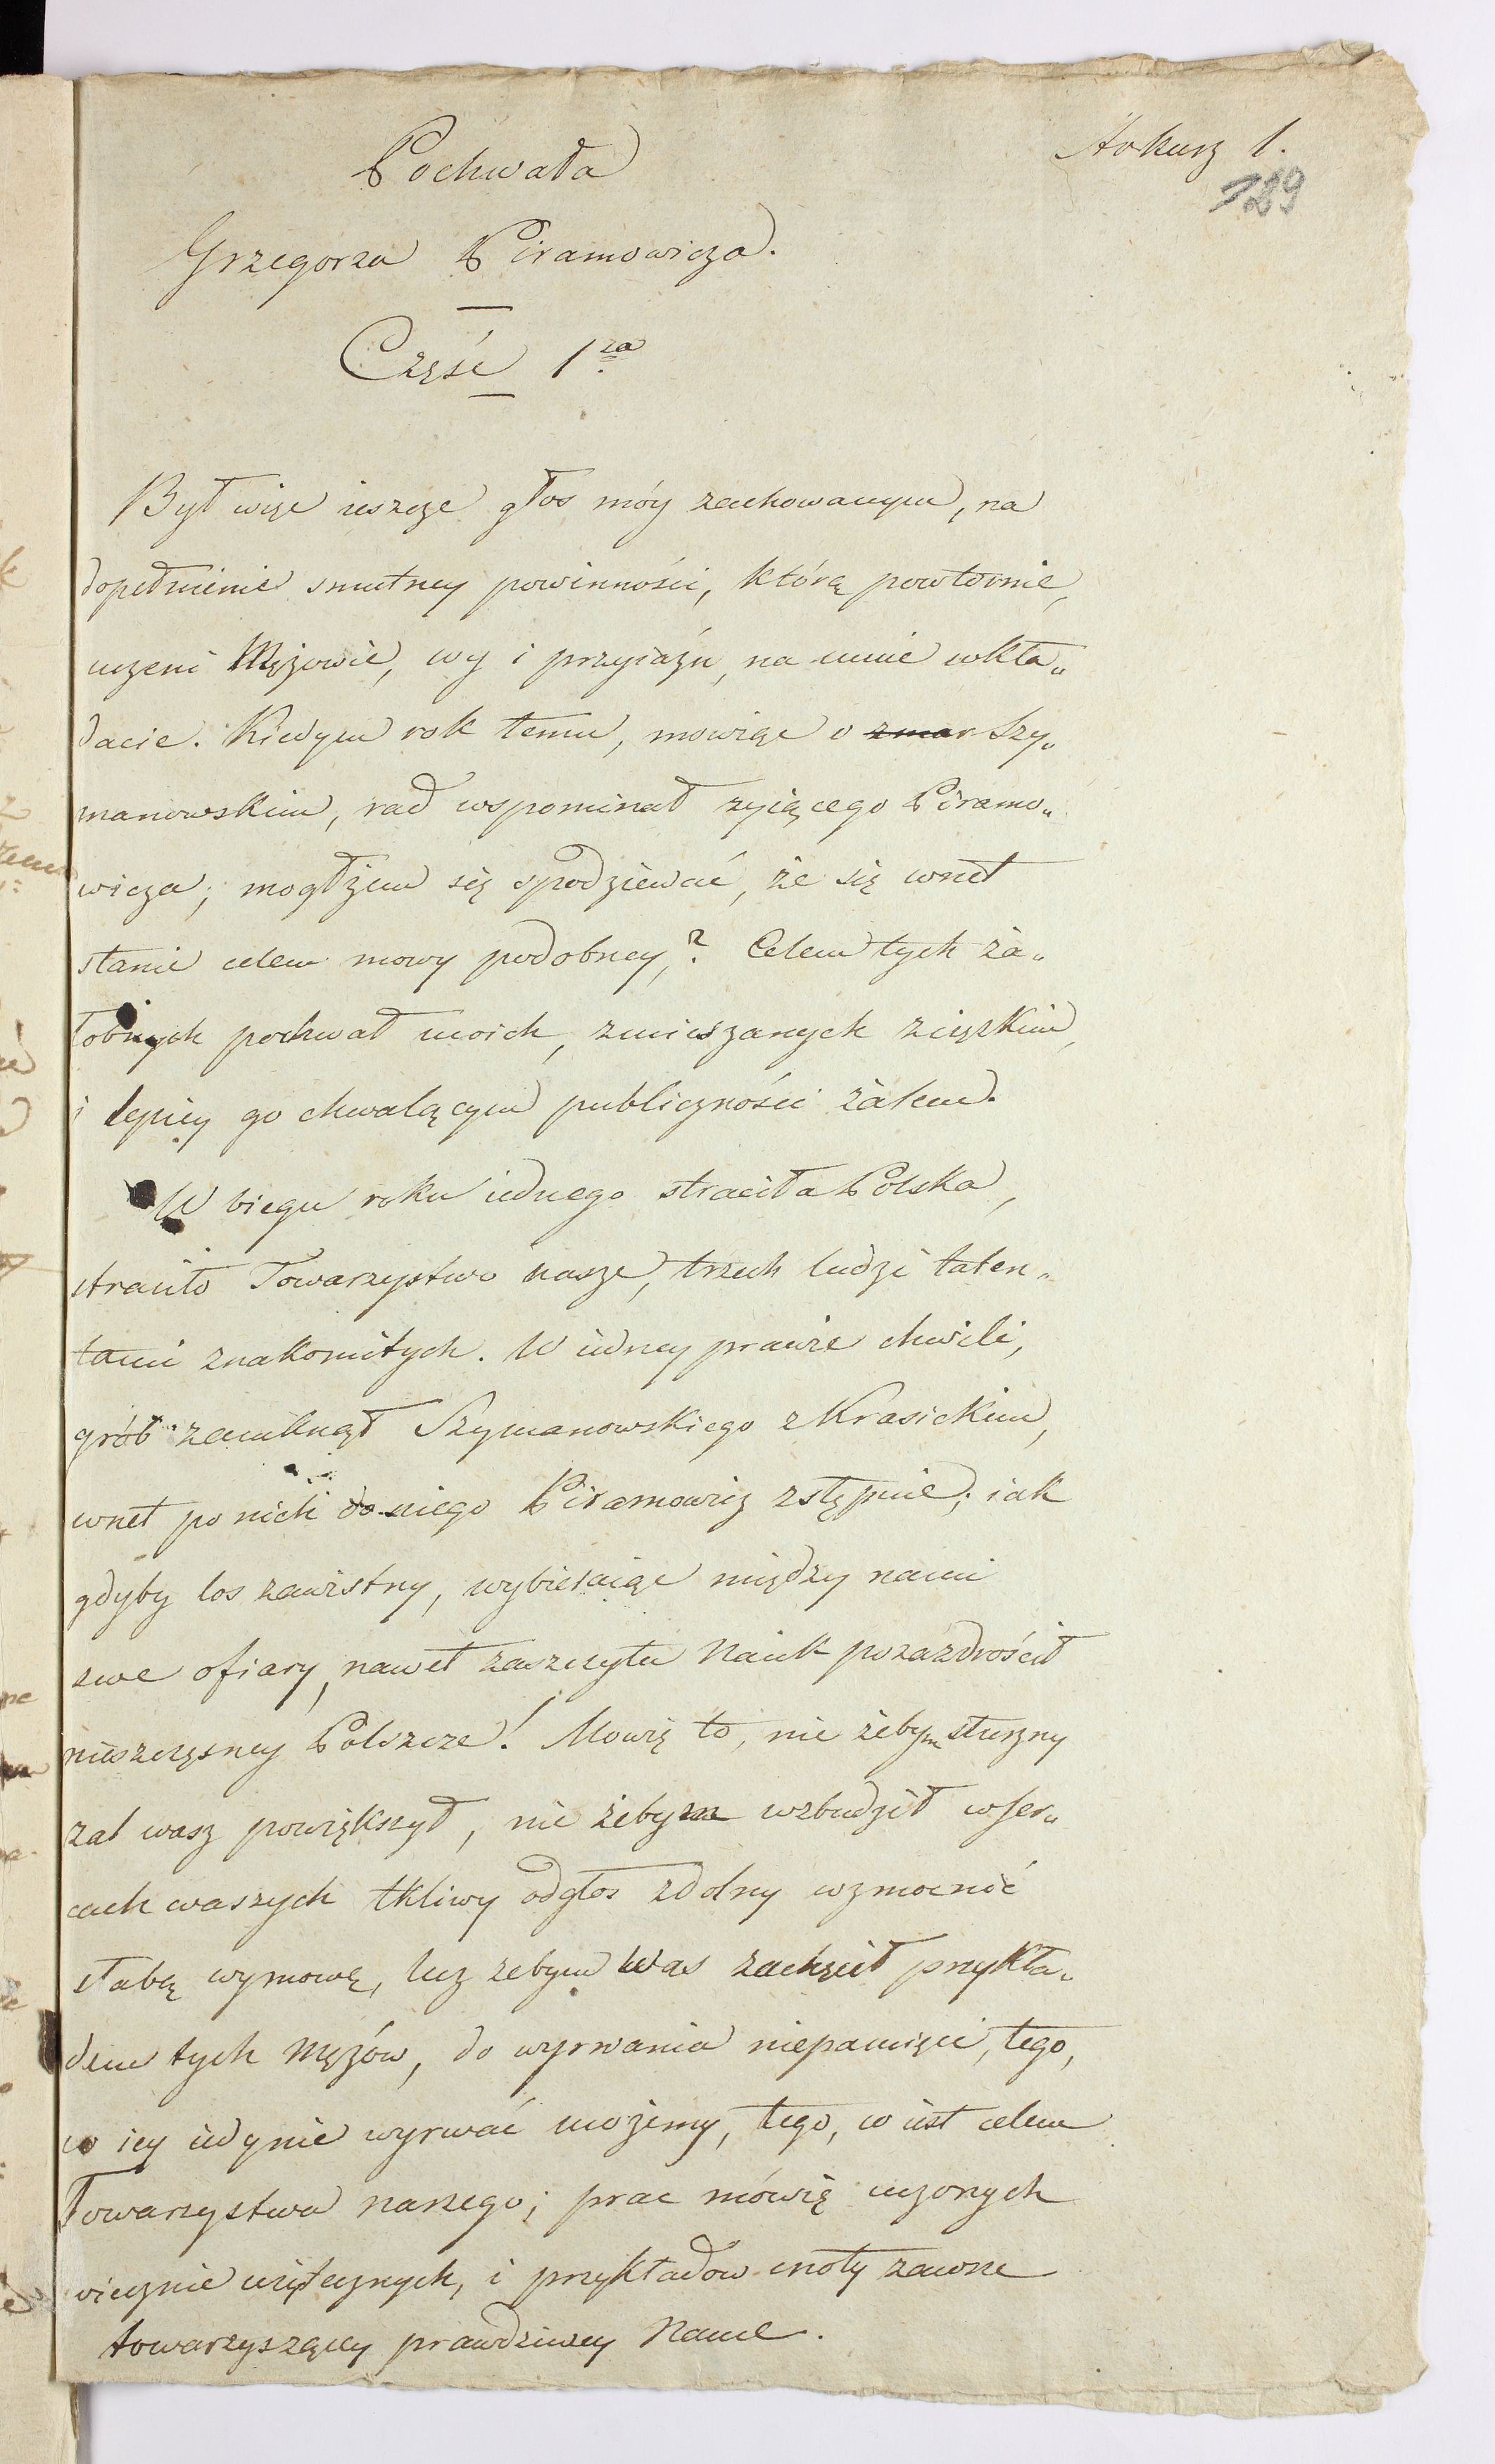 Pochwała
Arkusz 1.
129
Grzegorza Piramowicza.
Część 1za
Był więc ieszcze głos móy zachowanym, na
dopełnienie smutney powinności, którą powtornie,
uczeni Mężowie, wy i przyiaźń, na mnie wkła„
dacie. Kiedym rok temu, mowiąc o zmar Szy„
manowskim, rad wspominał zyiącego Piramo„
wicza; mogłżem się spodziewać, że się wnet
stanie celem mowy podobney,? Celem tych ża„
łobnych pochwał moich, zmieszanych z ciężkim,
i lepiey go chwalącym publiczności żalem.
W biegu roku iednego straciła Polska,
straciło Towarzystwo nasze, trzech ludzi talen„
tami znakomitych. W iedney prawie chwili,
grób zamknął Szymanowskiego z Krasickim,
wnet po nich do niego Piramowicz zstępuie; iak
gdyby los zawistny, wybieraiąc między nami
swe ofiary, nawet zaszczytu Nauk pozazdrościł
nieszczęsney Polszcze! Mowię to, nie żebym słuszny
żal wasz powiększył, nie żebym wzbudził w ser„
cach waszych tkliwy odgłos zdolny wzmocnić
słabą wymowę, lecz żebym Was zachęcił przykła„
dem tych Mężów, do wyrwania niepamięci, tego,
co iey iedynie wyrwać możemy, tego, co iest celem
Towarzystwa naszego; prac mówię uczonych
wiecznie użytecznych, i przykładow cnoty zawsze
towarzyszącey prawdziwey Nauce.